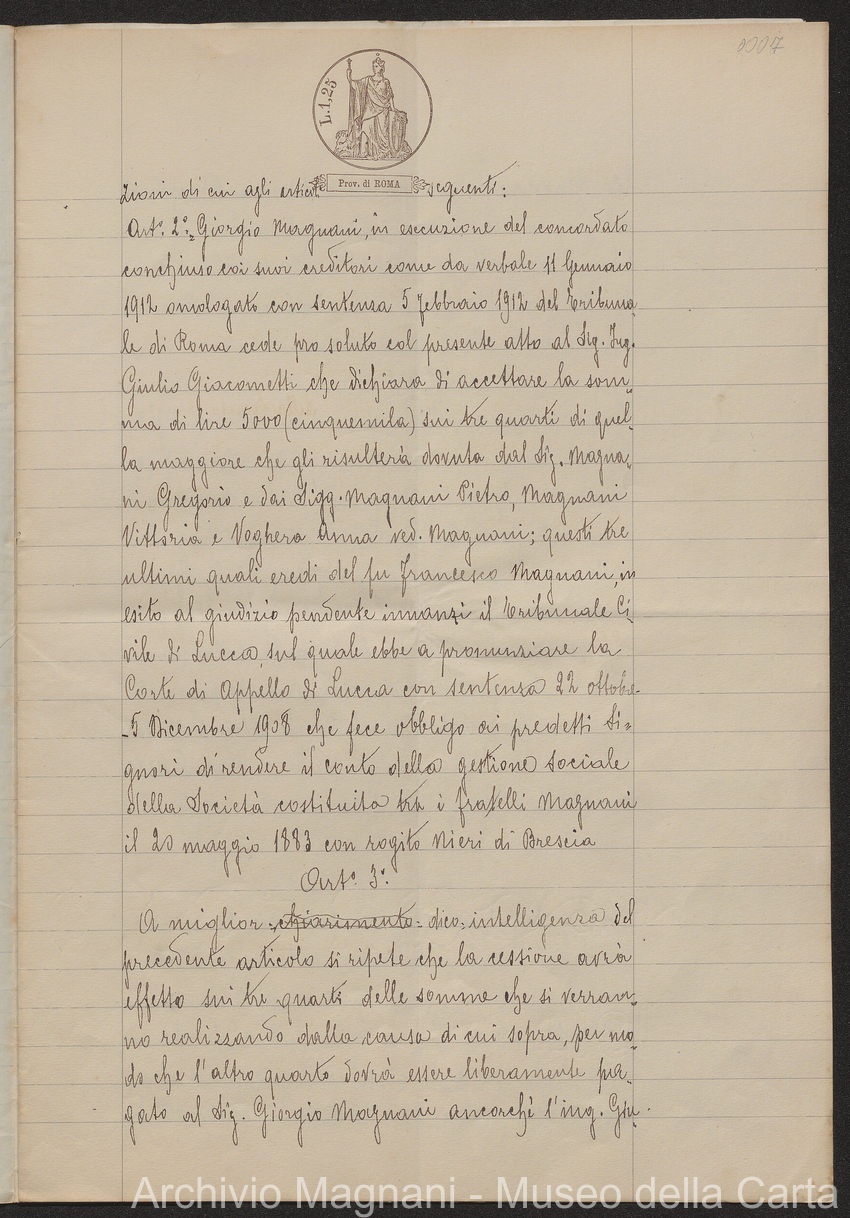 0007
L. 1,25
Prov. di ROMA
zioni di cui agli articoli seguenti:
Art.º 2º= Giorgio Magnani, in esecuzione del concordato
conchiuso coi suoi creditori come da verbale 11 Gennaio
1912 omologato con sentenza 5 Febbraio 1912 del Tribuna=
le di Roma cede pro soluto col presente atto al Sig. Ing.
Giulio Giacometti che dichiara di accettare la som=
ma di lire 5000 (cinquemila) sui tre quarti di quel=
la maggiore che gli risulterà dovuta dal Sig. Magna=
ni Gregorio e dai Sigg. Magnani Pietro, Magnani
Vittoria e Voghera Anna ved. Magnani; questi tre
ultimi quali eredi del fu Francesco Magnani, in
esito al giudizio pendente innanzi il Tribunale Ci=
vile di Lucca, sul quale ebbe a pronunziare la
Corte di Appello di Lucca con sentenza 22 ottobre-
-5 Dicembre 1908 che fece obbligo ai predetti Si=
gnori di rendere il conto della gestione sociale
della Società costituita tra i fratelli Magnani
il 20 maggio 1883 con rogito Nieri di Brescia
Art.º 3º.
A miglior =chiarimento= dico= intelligenza del
precedente articolo si ripete che la cessione avrà
effetto sui tre quarti delle somme che si verran=
no realizzando dalla causa di cui sopra, per mo=
do che l'altro quarto dovrà essere liberamente pa=
gato al Sig. Giorgio Magnani ancorchè l'ing. Giu-
Archivio Magnani - Museo della Carta